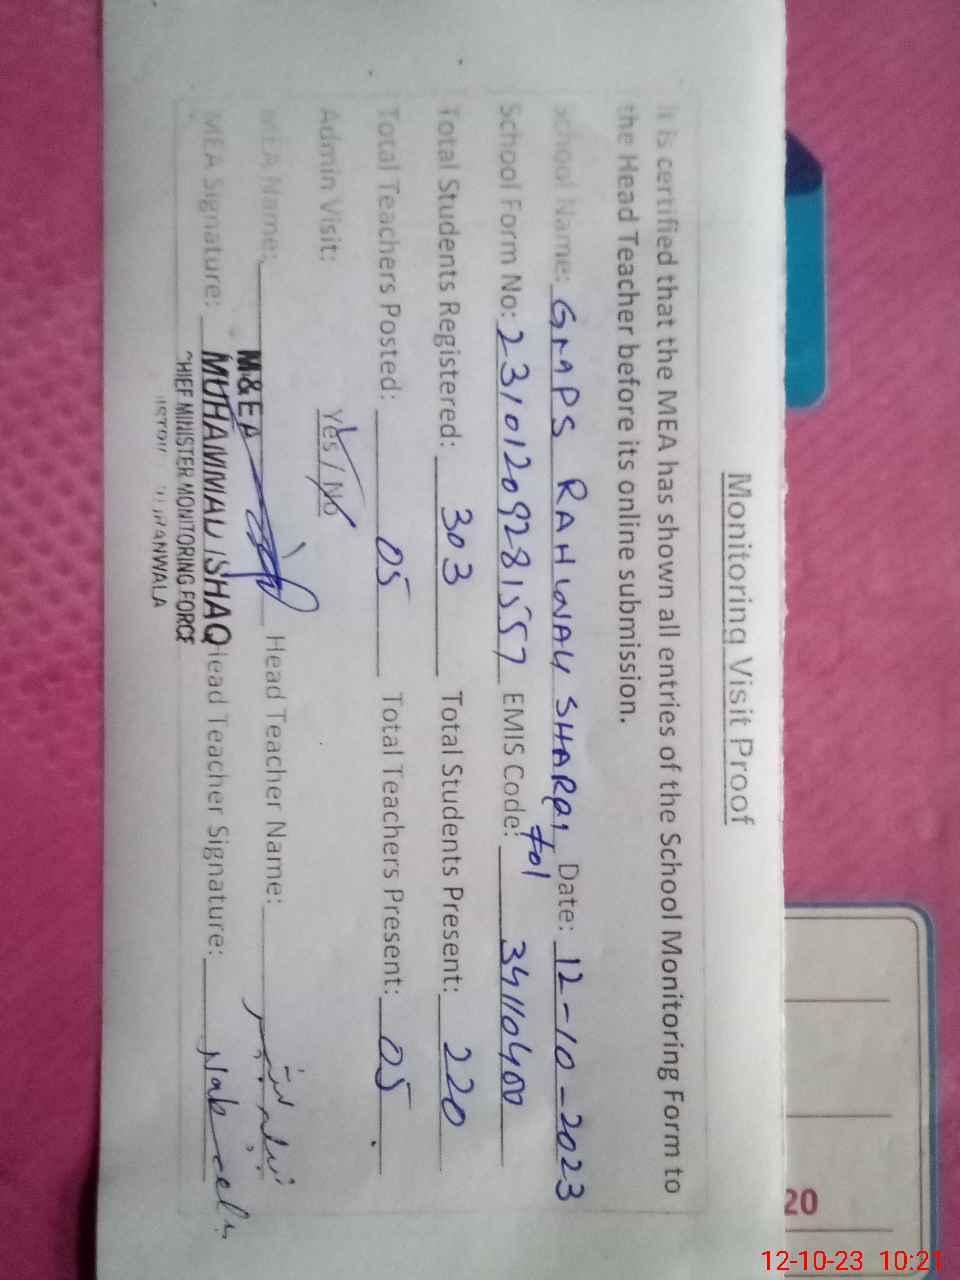 Monitoring Visit Proof
It is certified that the MEA has shown all entries of the School Monitoring Form to
the Head Teacher before its online submission.
School Name: GMPS RAHWALI SHARQI Date: 12-10-2023
School Form No: 23101209281557 EMIS Code: 34110400
Total Students Registered: 303 Total Students Present: 220
Total Teachers Posted: 05 Total Teachers Present: 05
Admin Visit: Yes / No
MEA Name: Head Teacher Name: نبیلہ
M&EA
MEA Signature: MUHAMMAD ISHAQ Head Teacher Signature: Nabeela
CHIEF MINISTER MONITORING FORCE
20
12-10-23 10:21